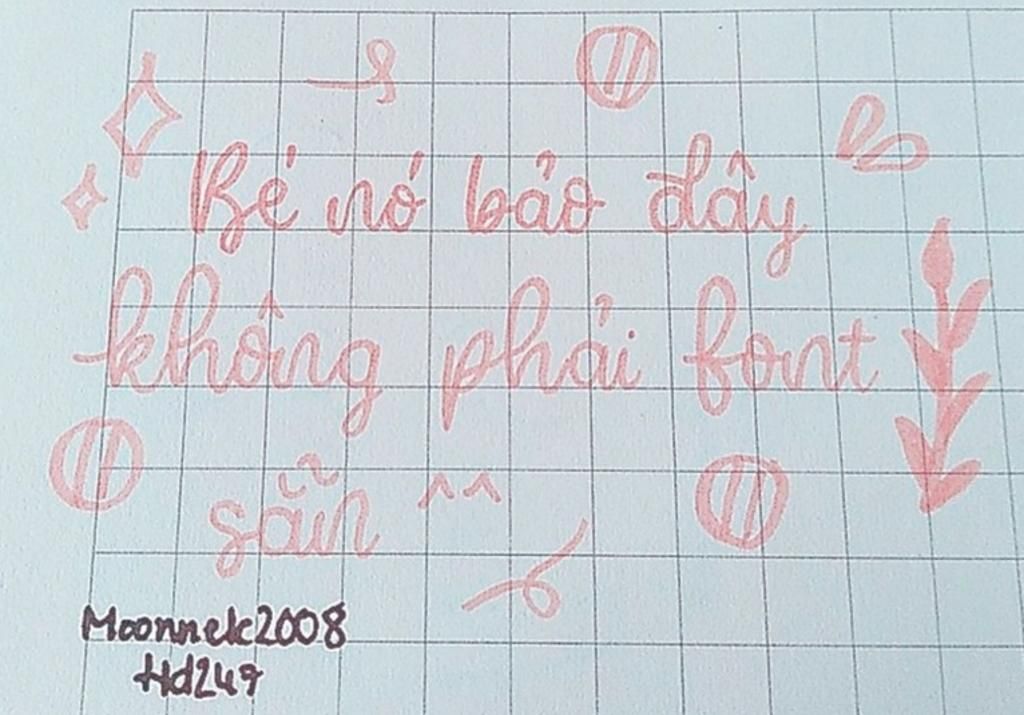 Bé nó bảo đây
không phải font
sẵn ^^
Moonnek2008
Hd247